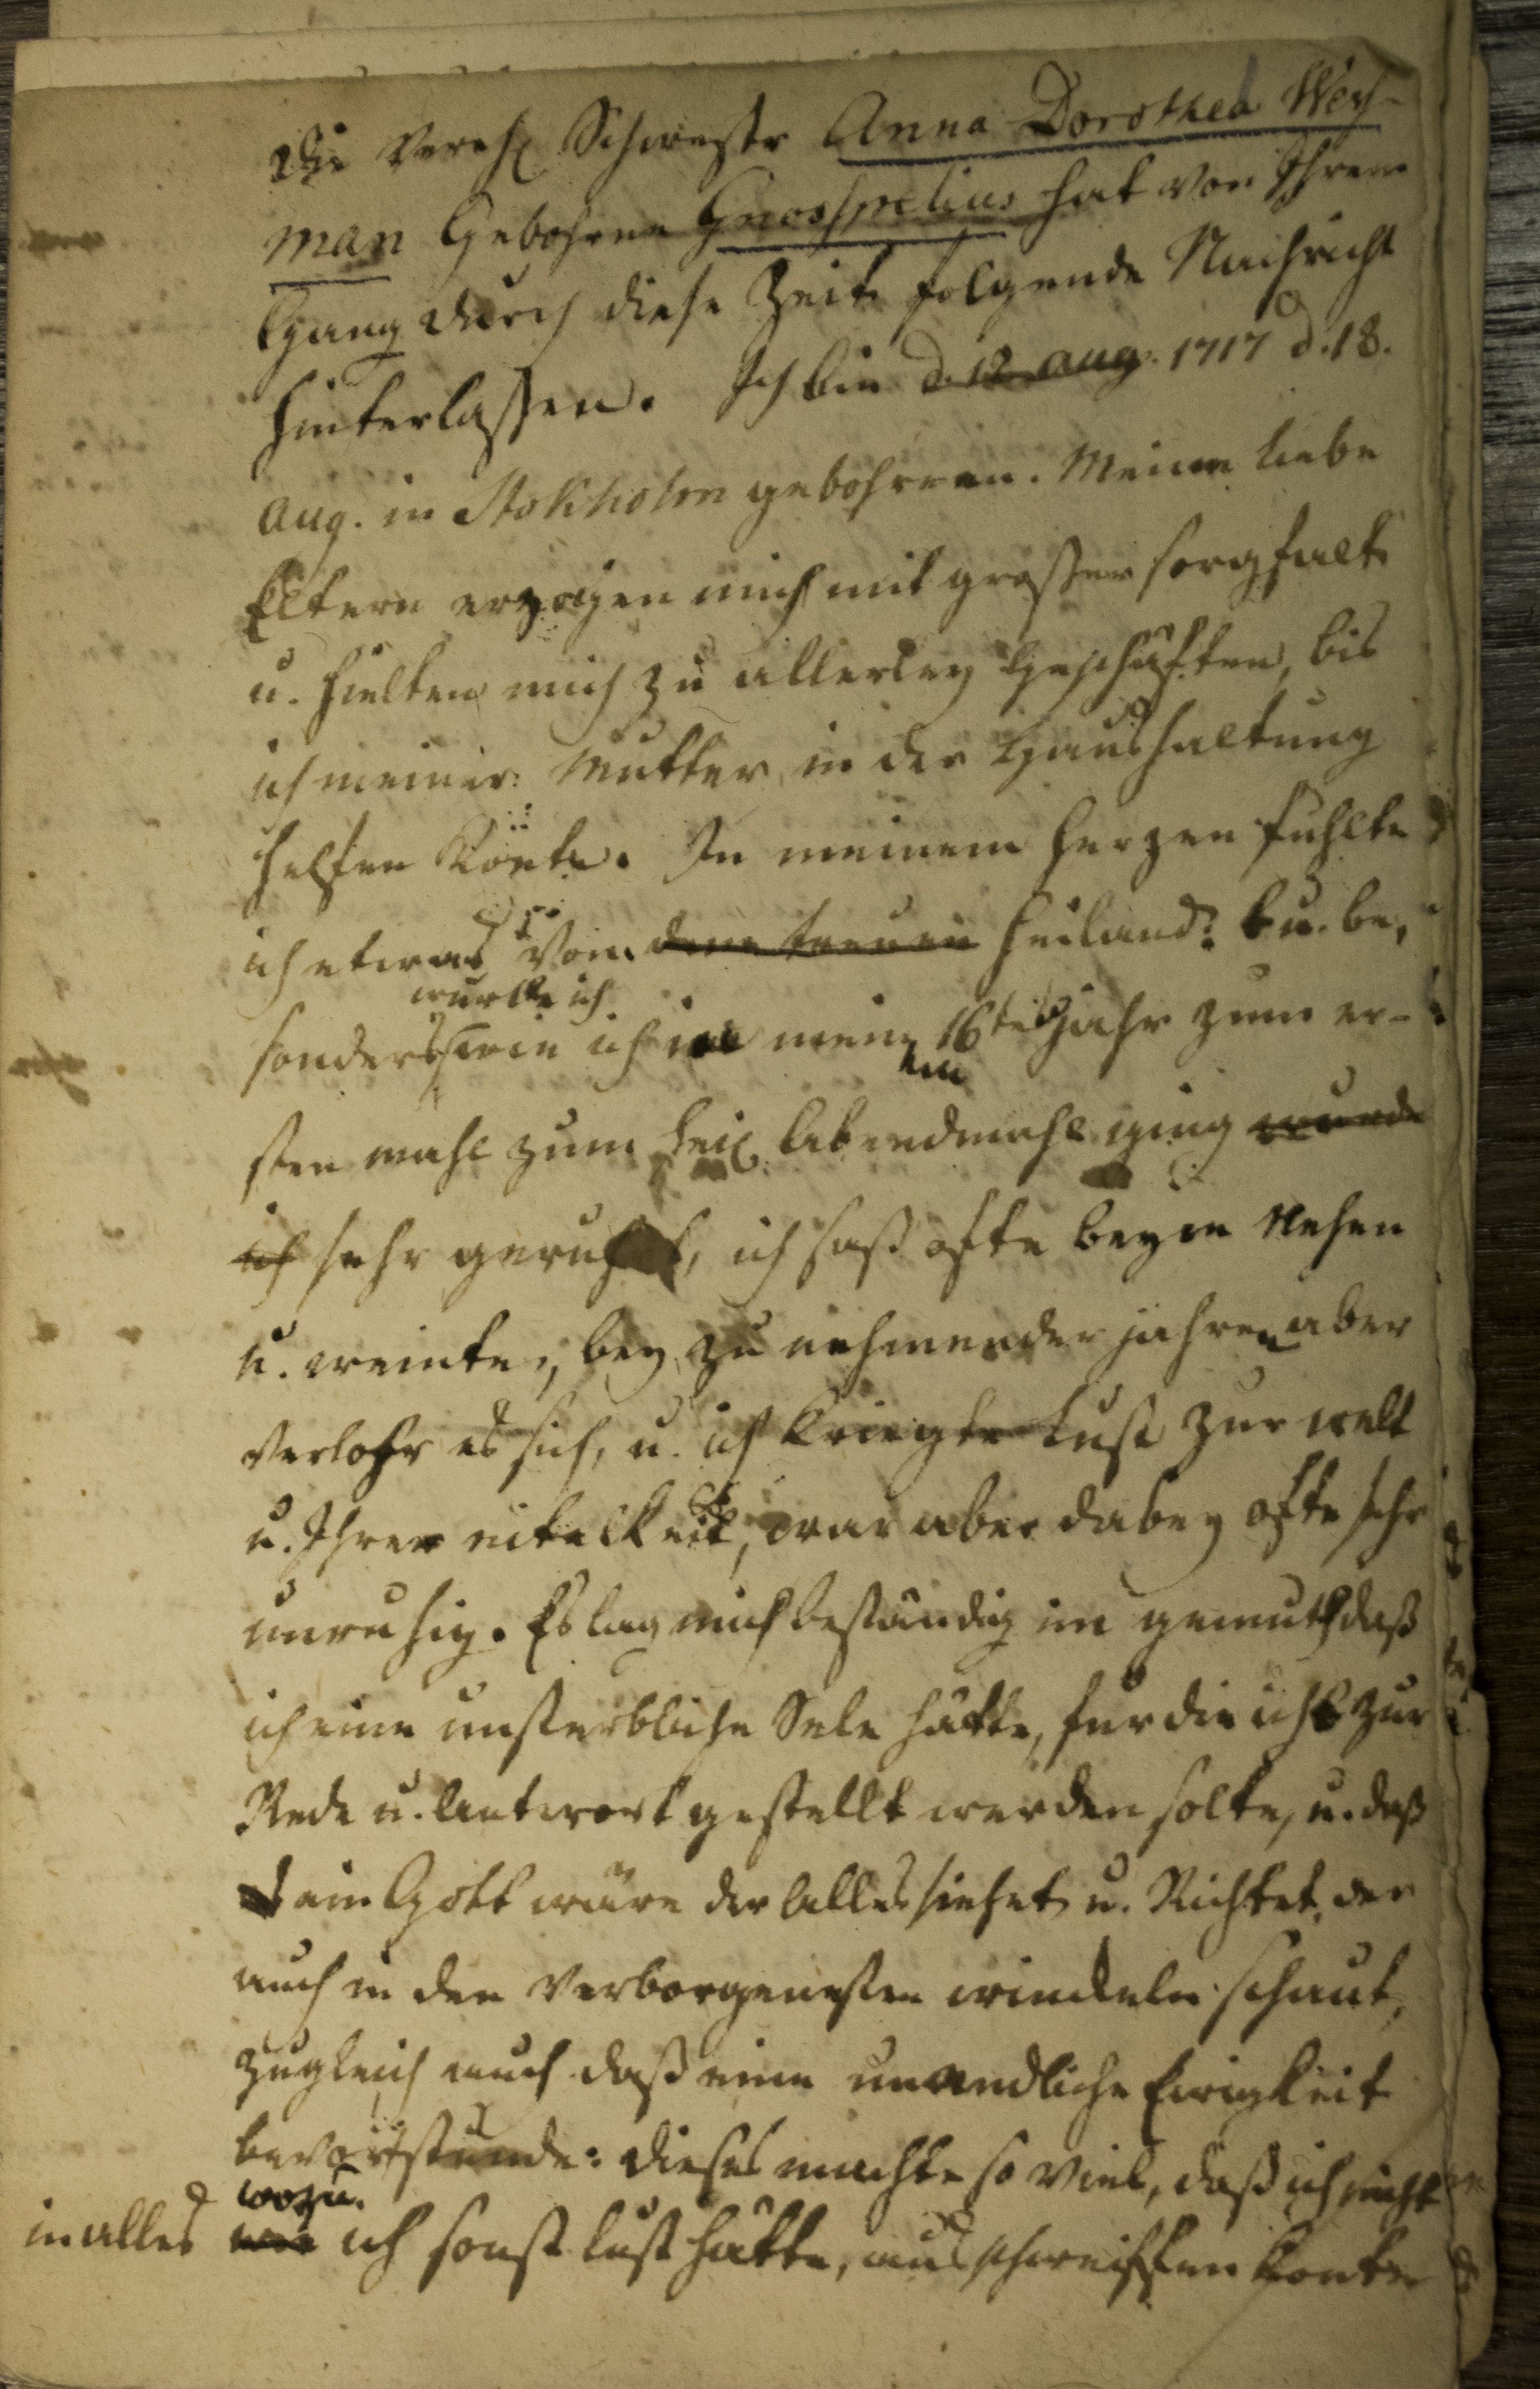 Die Verehl Schwestr Anna Dorothea Wey-
man Gebohrne Gnospelius hat von Ihrem
Gang durch diese Zeit folgende Nachricht
hinterlaßen. Ich bin d. 12 aug. 1717 d. 18.
Aug. in Stokholm gebohren. Meine liebe
Eltern erzogen mich mit großer sorgfalt
u. hielten mich zu allerley Geschäften, bis
ich meiner Mutter in der Haushaltung
helfen Konte. In meinem Herzen fühlte
ich etwas vom dem treuen Heiland: u. be,
wurde ich
sonders wie ich in mein 16te Jahr zum er-
em
sten mahl zum heil Abendmahl ging wurde
ich sehr gerührt, ich saß ofte beym Nehen
u. weinte, bey zu nehmender jahren aber
verlohr es sich, u. ich kriegte Lust zur welt
u. Ihrer eitelkeit, war aber dabey ofte sehr
unruhig. Es lag mich beständig im gemuth daß
ich eine unsterbliche Sele hätte, für die ich zur
Rede u. Antwort gestellt werden solte, u. daß
ein Gott wäre der Alles siehet u. Richtet, der
auch in den Verborgensten winkeln schaut,
zugleich auch daß eine unendliche Ewigkeit
bevorstünde: dieses machte so viel, daß ich nicht
wozu
in alles wie ich sonst lust hätte, ausschweiffen konte